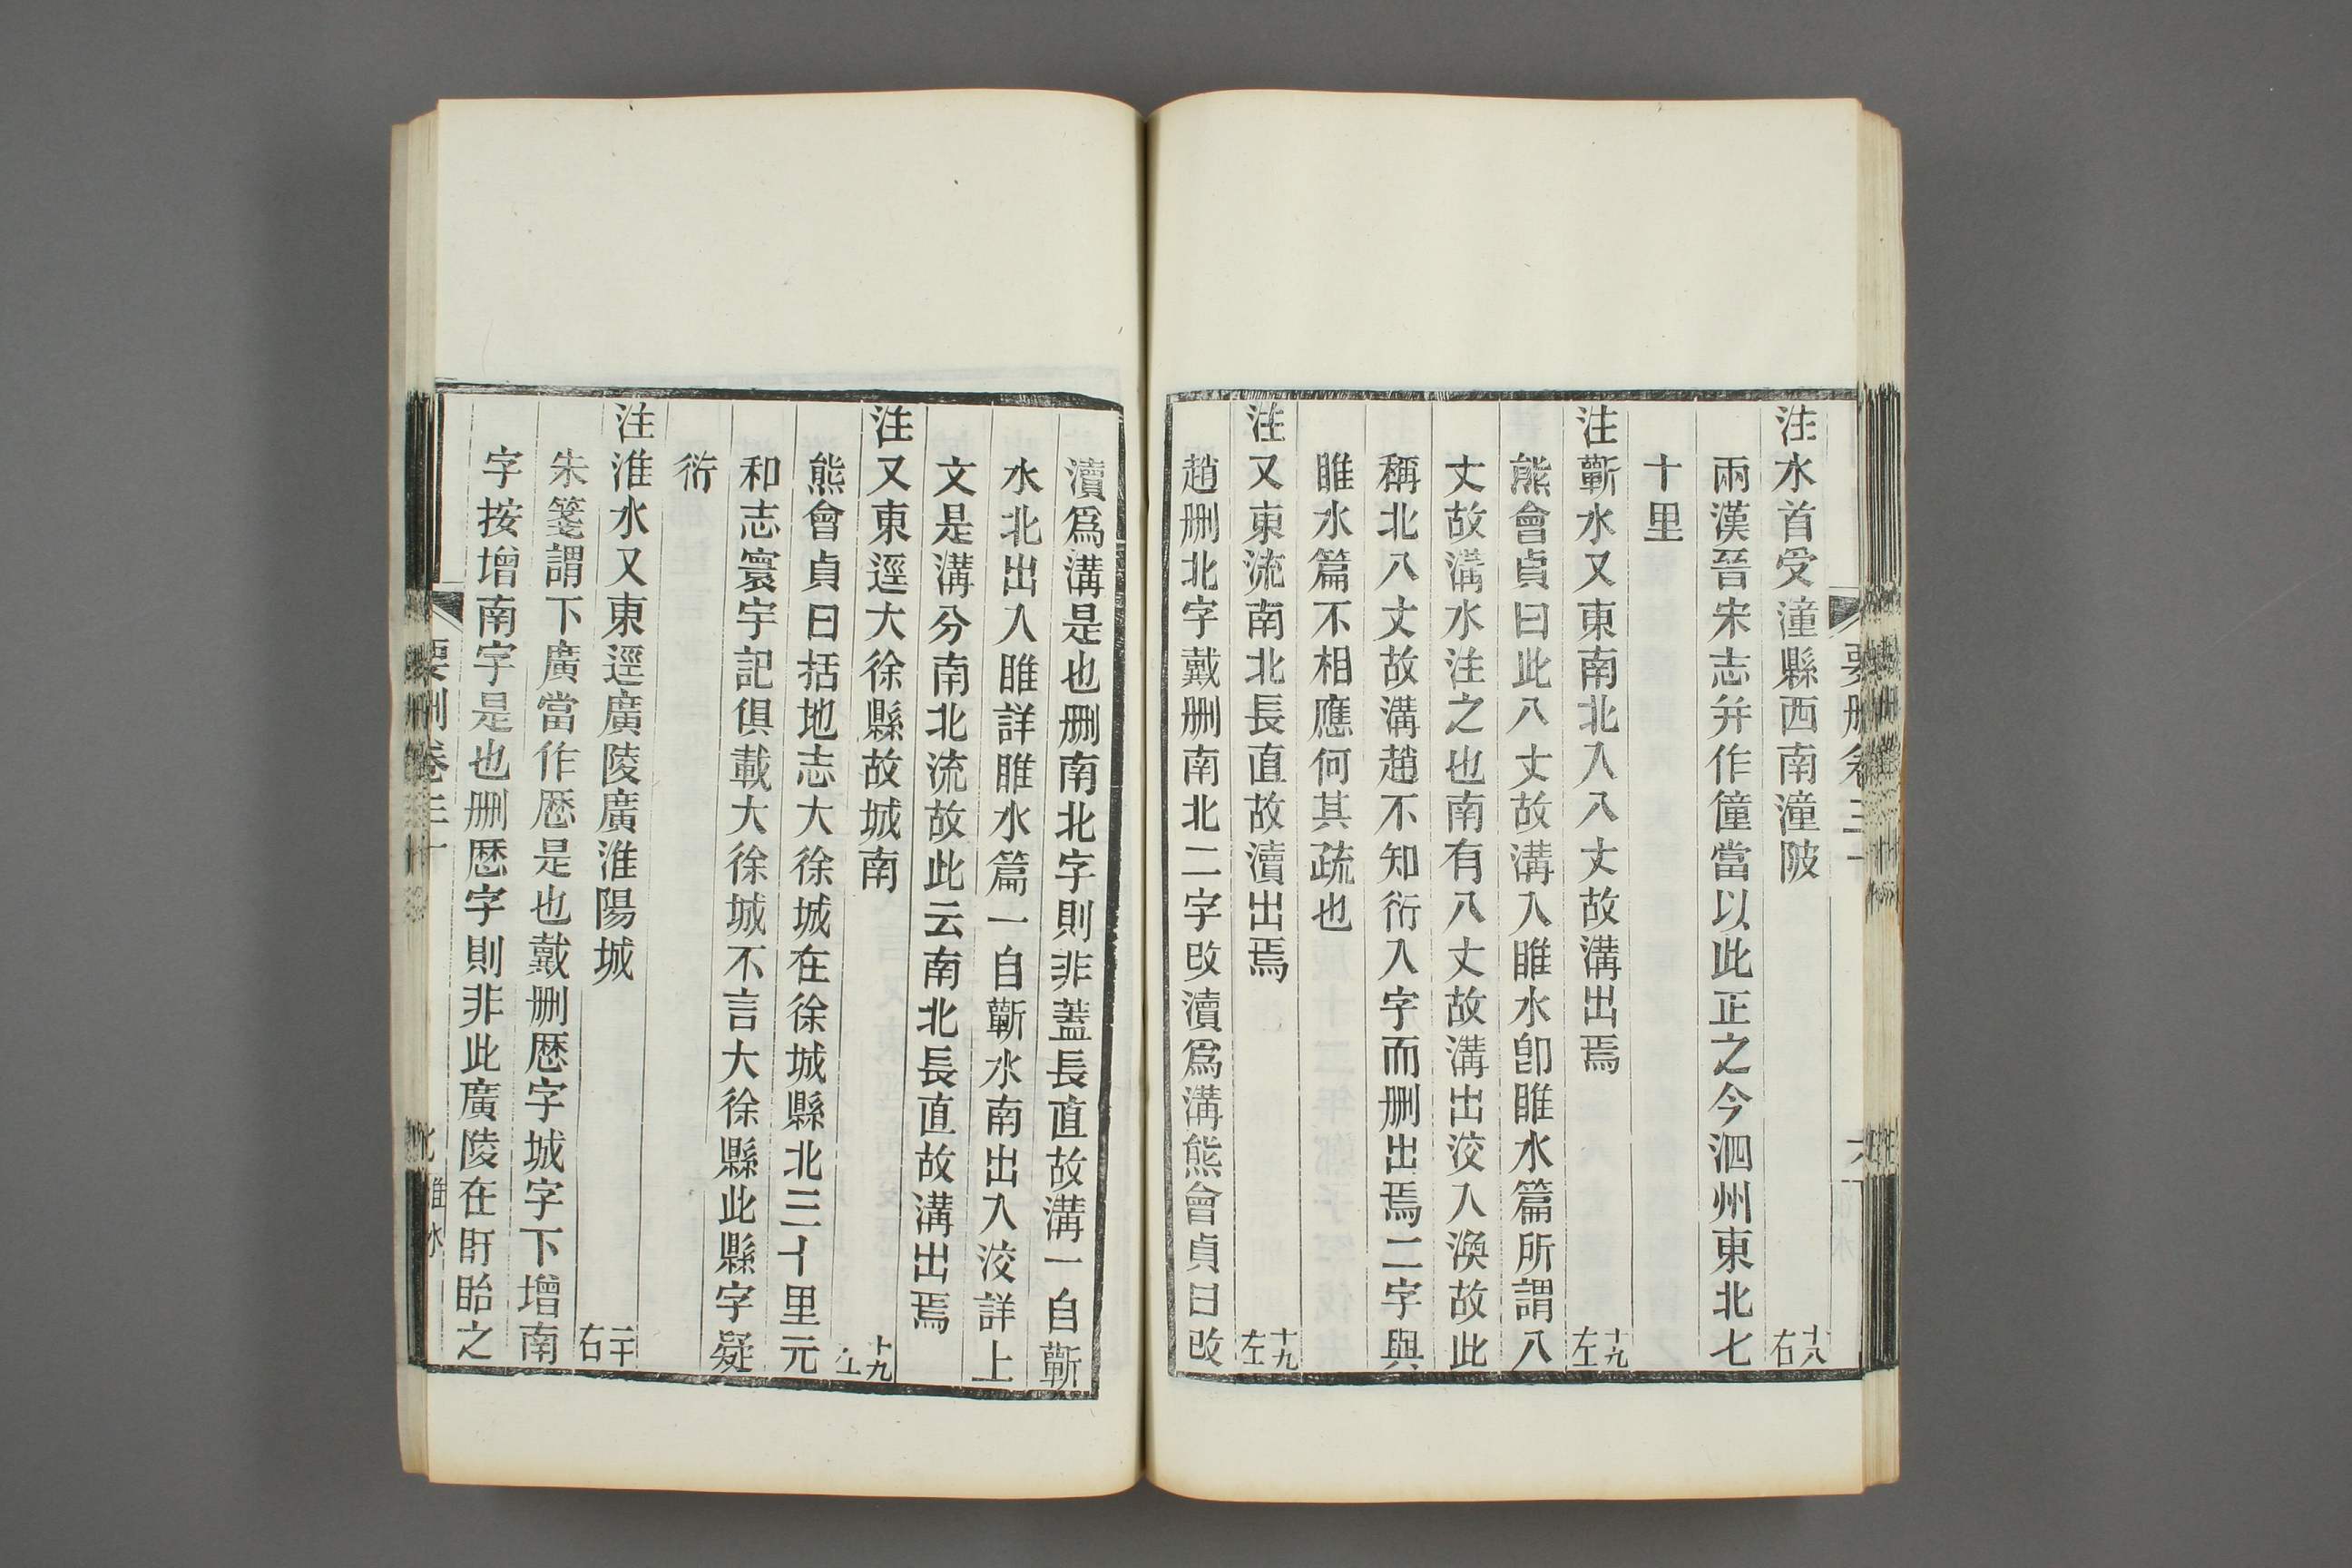 注水首受潼縣西南潼陂 十八右
兩漢晉宋志并作僮當以此正之今泗州東北七
十里
注蘄水又東南北入八丈故溝出焉 十九左
熊會貞曰此八丈故溝入睢水卽睢水篇所謂八
丈故溝水注之也南有八丈故溝出洨入渙故此
稱北八丈故溝趙不知衍入字而删出焉二字與
睢水篇不相應何其疏也
注又東流南北長直故瀆出焉 十九左
趙删北字戴删南北二字改瀆爲溝熊會貞曰改
瀆爲溝是也删南北字則非蓋長直故溝一自蘄
水北出入睢詳睢水篇一自蘄水南出入洨詳上
文是溝分南北流故此云南北長直故溝出焉
注又東逕大徐縣故城南 十九左
熊會貞曰括地志大徐城在徐城縣北三十里元
和志寰宇記俱載大徐城不言大徐縣此縣字疑
衍
注淮水又東逕廣陵廣淮陽城 二十右
朱箋謂下廣當作歷是也戴删歷字城字下增南
字按增南字是也删歷字則非此廣陵在盱眙之
要删卷三十
淮水